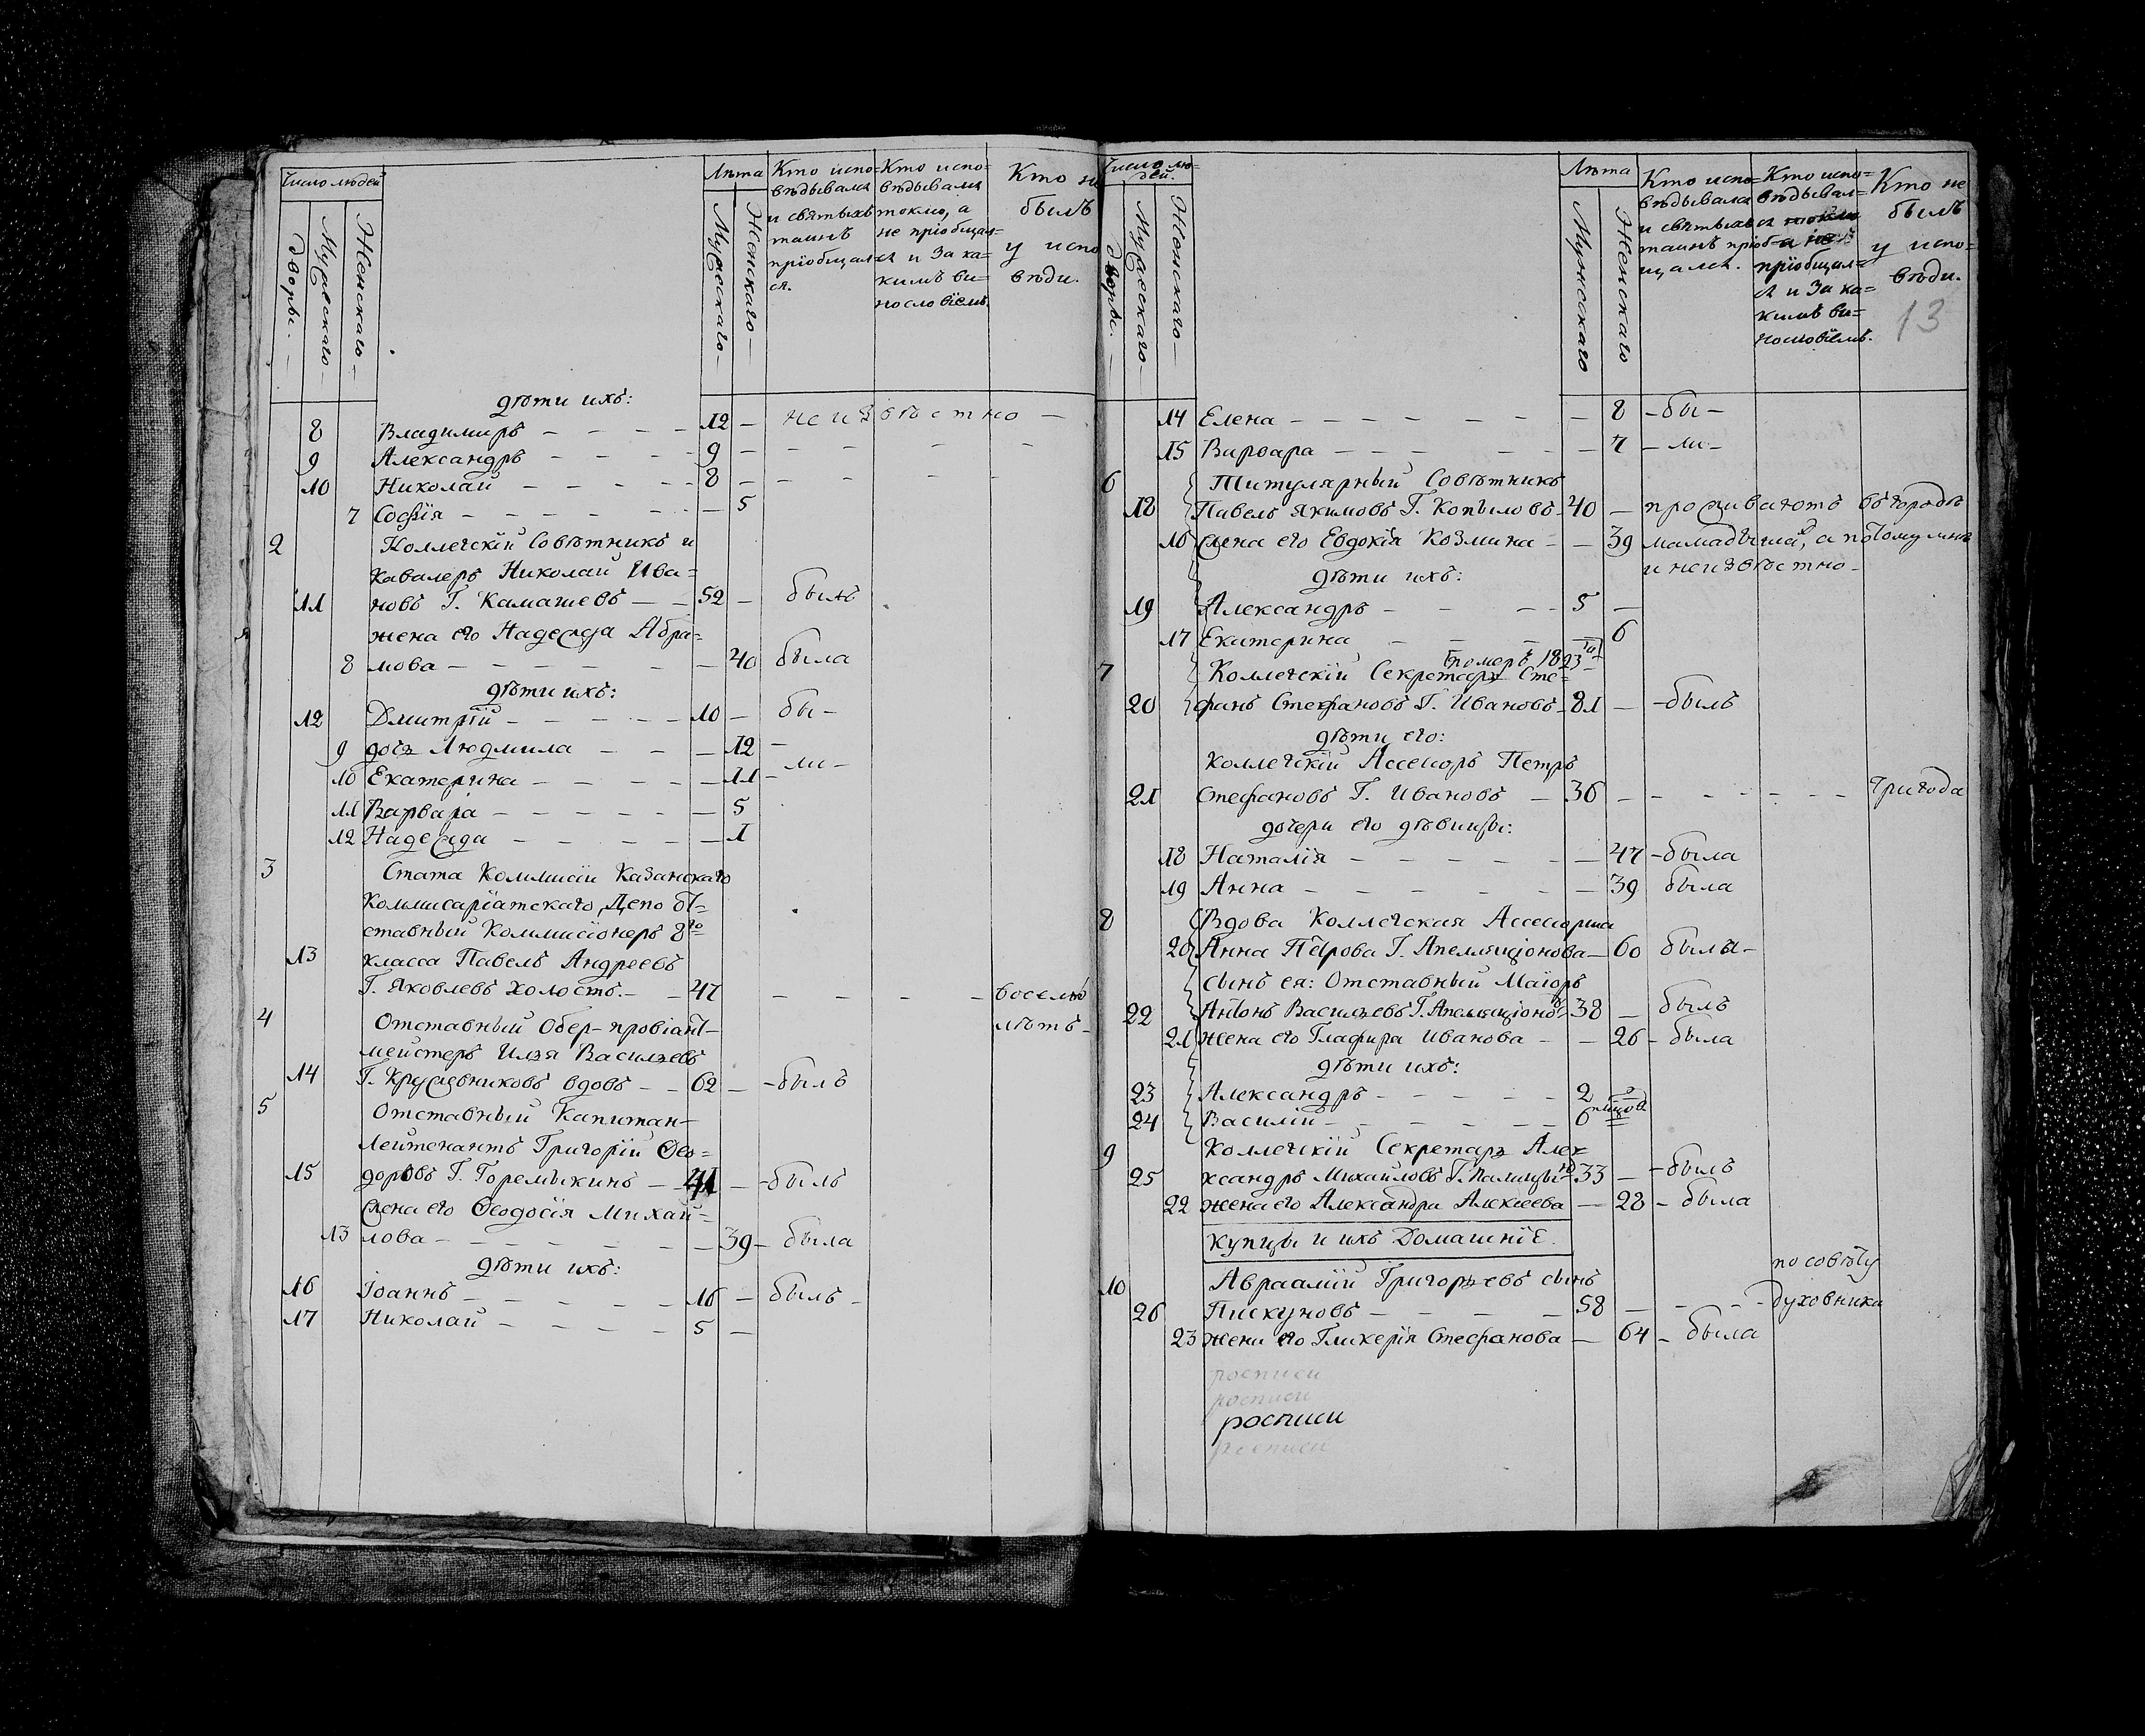 Число людей
Дворы.
Мужескаго
Женскаго
Лѣта
Мужескаго
Женскаго
Кто испо=
вѣдывался
и святыхъ
таинъ
пріобщал
ся.
Кто испо=
вѣдывался
токмо, а
не пріобщал=
ся и за ка=
кимъ ви=
нословіемъ.
Кто не
былъ
у испо
вѣди.
дѣти ихъ:
8 Владимиръ — — — — 12 — неизвѣстно —
9 Александръ — — — — 9 — — — — —
10 Николай — — — — — 8 — — — — —
7 Софія — — — — — — 5
2 Коллегскій Совѣтникъ и
Кавалеръ Николай Ива=
11 новъ Г. Камашевъ — — 52 — былъ
жена его Надежда Абра=
8 мова — — — — — — — 40 была
дѣти ихъ:
12 Дмитрій — — — — — 10 — бы —
9 дочь Людмила — — — 12 —
10 Екатерина — — — — — 11 — ли —
11 Варвара — — — — — — 5
12 Надежда — — — — — 1
3 Стата Коммисіи Казанскаго
Коммисаріатскаго Депо От=
ставный Коммисіонеръ 8го
13 класса Павелъ Андреевъ
Г. Яковлевъ холостъ. — — 47 — — — — — восемь
лѣтъ —
4 Отставный Обер-провіант—
мейстеръ Илья Васильевъ
14 Г. Кружевниковъ вдовъ — — 62 — — былъ
5 Отставный Капитан—
Лейтенантъ Григорій Ѳео=
15 доровъ Г. Горемыкинъ — 41 — — былъ
Жена его Ѳеодосія Михай=
13 лова — — — — — — — — 39 — была
дѣти ихъ:
16 Іоаннъ — — — — — 16 — былъ —
17 Николай — — — — 5 —
Число лю=
дей.
Дворы.
Мужескаго
Женскаго
Лѣта
Мужескаго
Женскаго
Кто испо=
вѣдывался
и святыхъ
таинъ пріоб=
щался.
Кто испо=
вѣдывал=
ся токмо
а не
пріобщал=
ся и за ка=
кимъ ви=
нословіемъ.
Кто не
былъ
у испо=
вѣди.
13
14 Елена — — — — — — — 8 — бы —
15 Варвара — — — — — — 7 — ли —
6 Титулярный Совѣтникъ
18 Павелъ Якимовъ Г. Копыловъ 40 — проживаютъ въ городѣ
16 Жена его Евдокія Козмина — — 39 мамадыше, а потому мнѣ
и неизвѣстно —
дѣти ихъ:
19 Александръ — — — — 5 —
17 Екатерина — — — — — 6
померъ 1823 го
7 Коллегскій Секретарь Сте=
20 фанъ Стефановъ Г. Ивановъ — 81 — — былъ
дѣти его:
Коллегскій Ассесоръ Петръ
21 Стефановъ Г. Ивановъ — 36 — — — — — — — три года
дочери его дѣвицы:
18 Наталія — — — — — — 47 — была
19 Анна — — — — — — — 39 была
8 Вдова Коллегская Ассесорша
20 Анна Петрова Г. Апелляціонова — 60 была —
сынъ ея: Отставный Маіоръ
22 Антонъ Васильевъ Г. Апелляціоновъ 38 — былъ
21 жена его Глафира Иванова — — 26 — была
дѣти ихъ:
23 Александръ — — — — — 2
24 Василій — — — — — — 6
9 Коллегскій Секретарь Алек
25 ксандръ Михайловъ Г. Палицынъ 33 — — былъ
22 жена его Александра Алексеева — 28 — была
Купцы и ихъ Домашніе.
10 Авраамій Григорьевъ сынъ по совѣту
26 Пискуновъ — — — — — 58 — — — — духовника
23 жена его Гликерія Стефанова — 64 — была
росписи
росписи
росписи
росписи